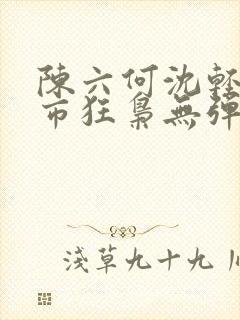 陳六何沈輕
市狂梟無彈
淺草九十九